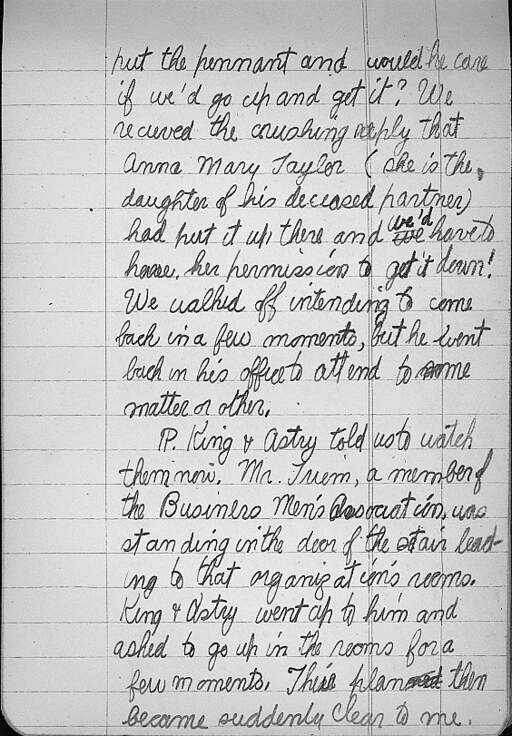 put the pennant and would he care
if we'd go up and get it? We
recieved the crushing reply that
Anna Mary Taylor (she is the
daughter of his deceased partner)
had put it up there and we'd have to
have her permission to get it down!
We walked off intending to come
back in a few moments, but he went
back in his office to attend to some
matter or other.
P. King & Astry told us to watch
them now. Mr. Truim, a member of
the Business Men's Association, was
standing in the door of the stair lead-
ing to that organization's rooms.
King & Astry went up to him and
asked to go up in the rooms for a
few moments. Their plan then
became suddenly clear to me.